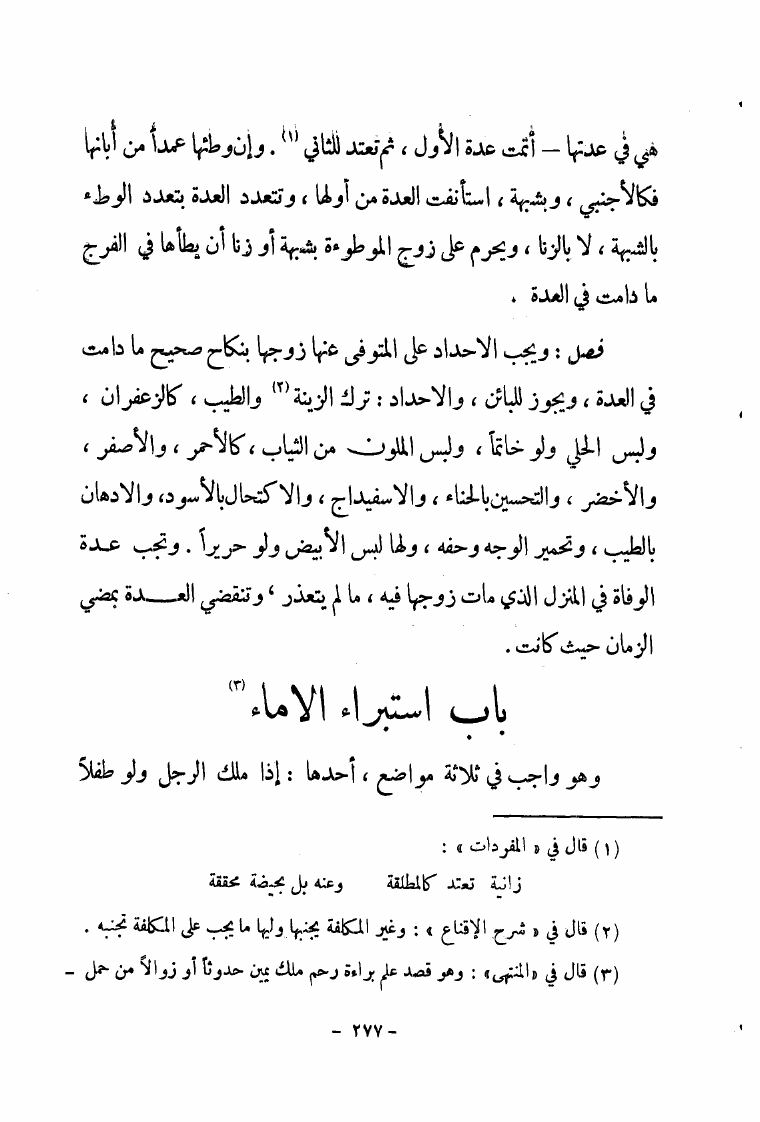 هي في عدتها — أتمت عدة الأول ، ثم تعتد للثاني (١) . وإن وطئها عمداً من أبانها
فكالأجنبي ، وبشبهة ، استأنفت العدة من أولها ، وتتعدد العدة بتعدد الوطء
بالشبهة ، لا بالزنا ، ويحرم على زوج الموطوءة بشبهة أو زنا أن يطأها في الفرج
ما دامت في العدة .
فصل : ويجب الاحداد على المتوفى عنها زوجها بنكاح صحيح ما دامت
في العدة ، ويجوز للبائن ، والاحداد : ترك الزينة (٢) والطيب ، كالزعفران ،
ولبس الحلي ولو خاتماً ، ولبس الملون من الثياب ، كالأحمر ، والأصفر ،
والأخضر ، والتحسين بالحناء ، والاسفيداج ، والاكتحال بالأسود، والادهان
بالطيب ، وتحمير الوجه وحفه ، ولها لبس الأبيض ولو حريراً . وتجب عدة
الوفاة في المنزل الذي مات زوجها فيه ، ما لم يتعذر ، وتنقضي العدة بمضي
الزمان حيث كانت .
باب استبراء الاماء (٣)
وهو واجب في ثلاثة مواضع ، أحدها : إذا ملك الرجل ولو طفلاً
(١) قال في « المفردات » :
زانية تعتد كالمطلقة وعنه بل بحيضة محققة
(٢) قال في « شرح الإقناع » : وغير المكلفة يجنبها وليها ما يجب على المكلفة تجنبه .
(٣) قال في «المنتهى» : وهو قصد علم براءة رحم ملك يمين حدوثاً أو زوالاً من حمل –
– ٢٧٧ –